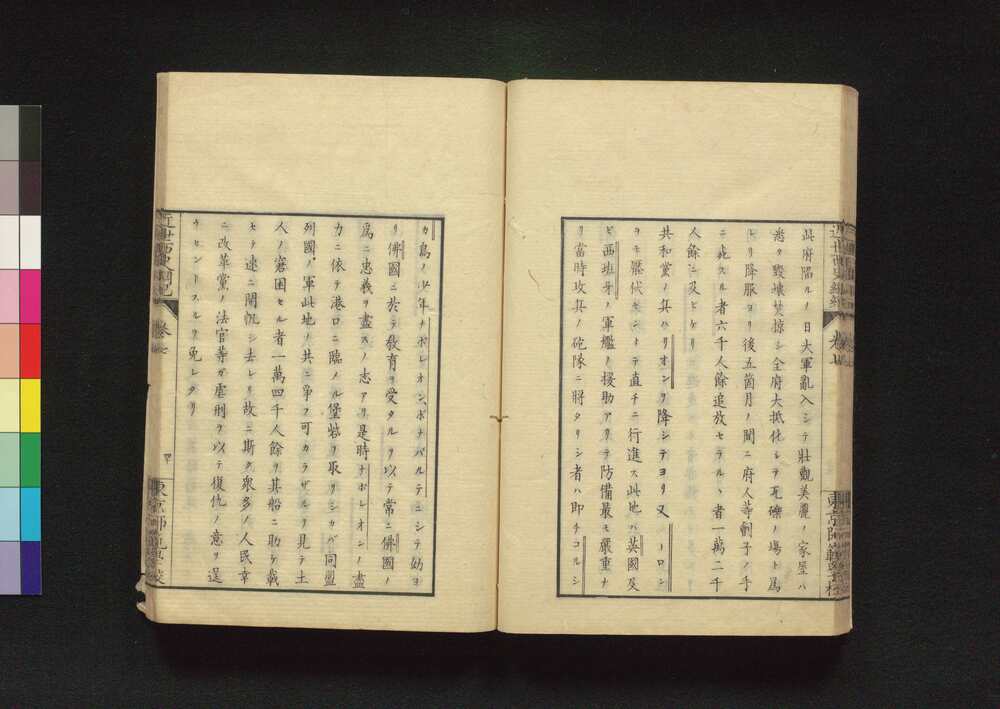 此府陷ルノ日大軍亂入シテ壯觀美麗ノ家屋ハ
悉ク毀壞焚掠シ全府大抵化シテ瓦礫ノ場ト爲
レリ降服ヨリ後五箇月ノ間ニ府人等劊子ノ手
ニ死スル者六千人餘追放セラルヽ者一萬二千
人餘ニ及ヒケリ
共和黨ノ兵ハリオンヲ降シテヨリ又ツーロン
ヲモ懾伏セントテ直チニ行進ス此地ハ英國及
ヒ西班牙ノ軍艦ノ援助アリテ防備最モ嚴重ナ
リ當時攻兵ノ砲隊ニ將タリシ者ハ即チコルシ
カ島ノ少年ナポレオン、ボナパルテニシテ幼ヨ
リ佛國ニ於テ敎育ヲ受タルヲ以テ常ニ佛國ノ
爲ニ忠義ヲ盡スノ志アリ是時ナポレオンノ盡
力ニ依テ港口ニ臨メル堡砦ヲ取リシカバ同盟
列國ノ軍此地ノ共ニ爭フ可カラザルヲ見テ土
人ノ窘困セル者一萬四千人餘ヲ其船ニ助ケ載
セテ速ニ開帆シ去レリ故ニ斯ク衆多ノ人民幸
ニ改革黨ノ法官等ガ虐刑ヲ以テ復仇ノ意ヲ逞
ウセントスルヲ免レタリ
近世西史
卷七
東京師範學校